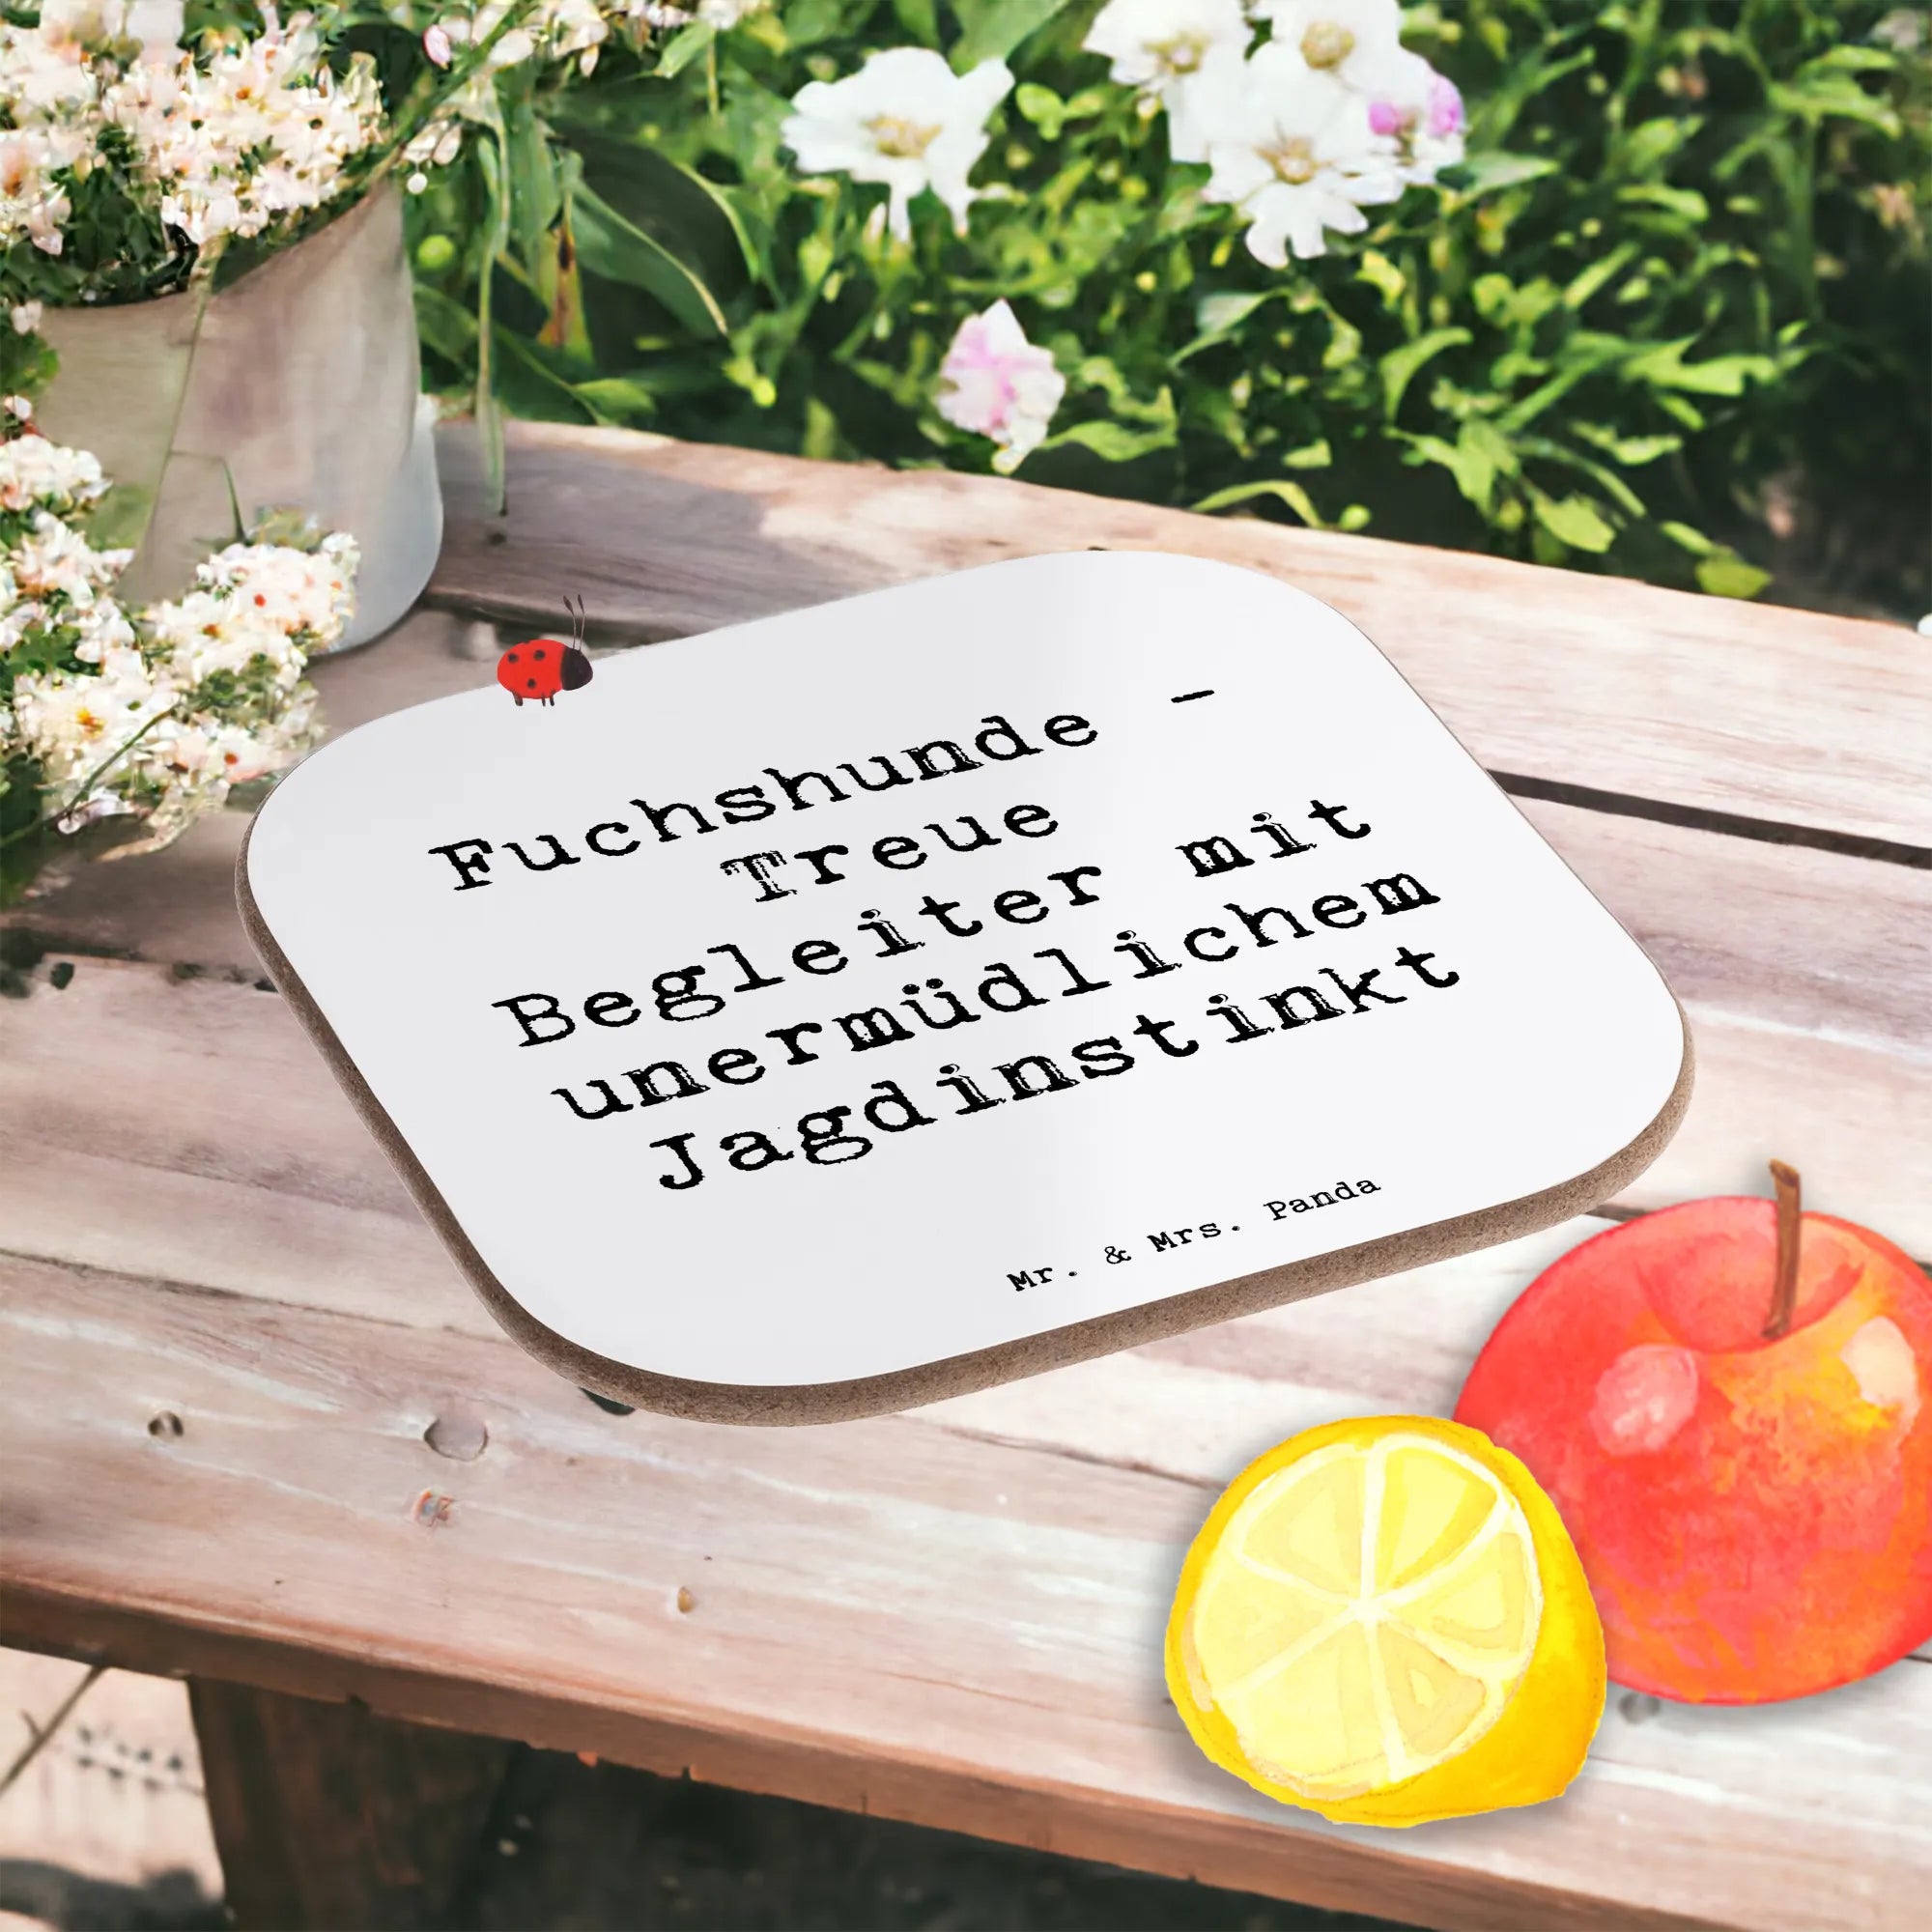 Fuchshunde -
Treue
Begleiter mit
unermüdlichem
Jagdinstinkt
Mr. & Mrs. Panda